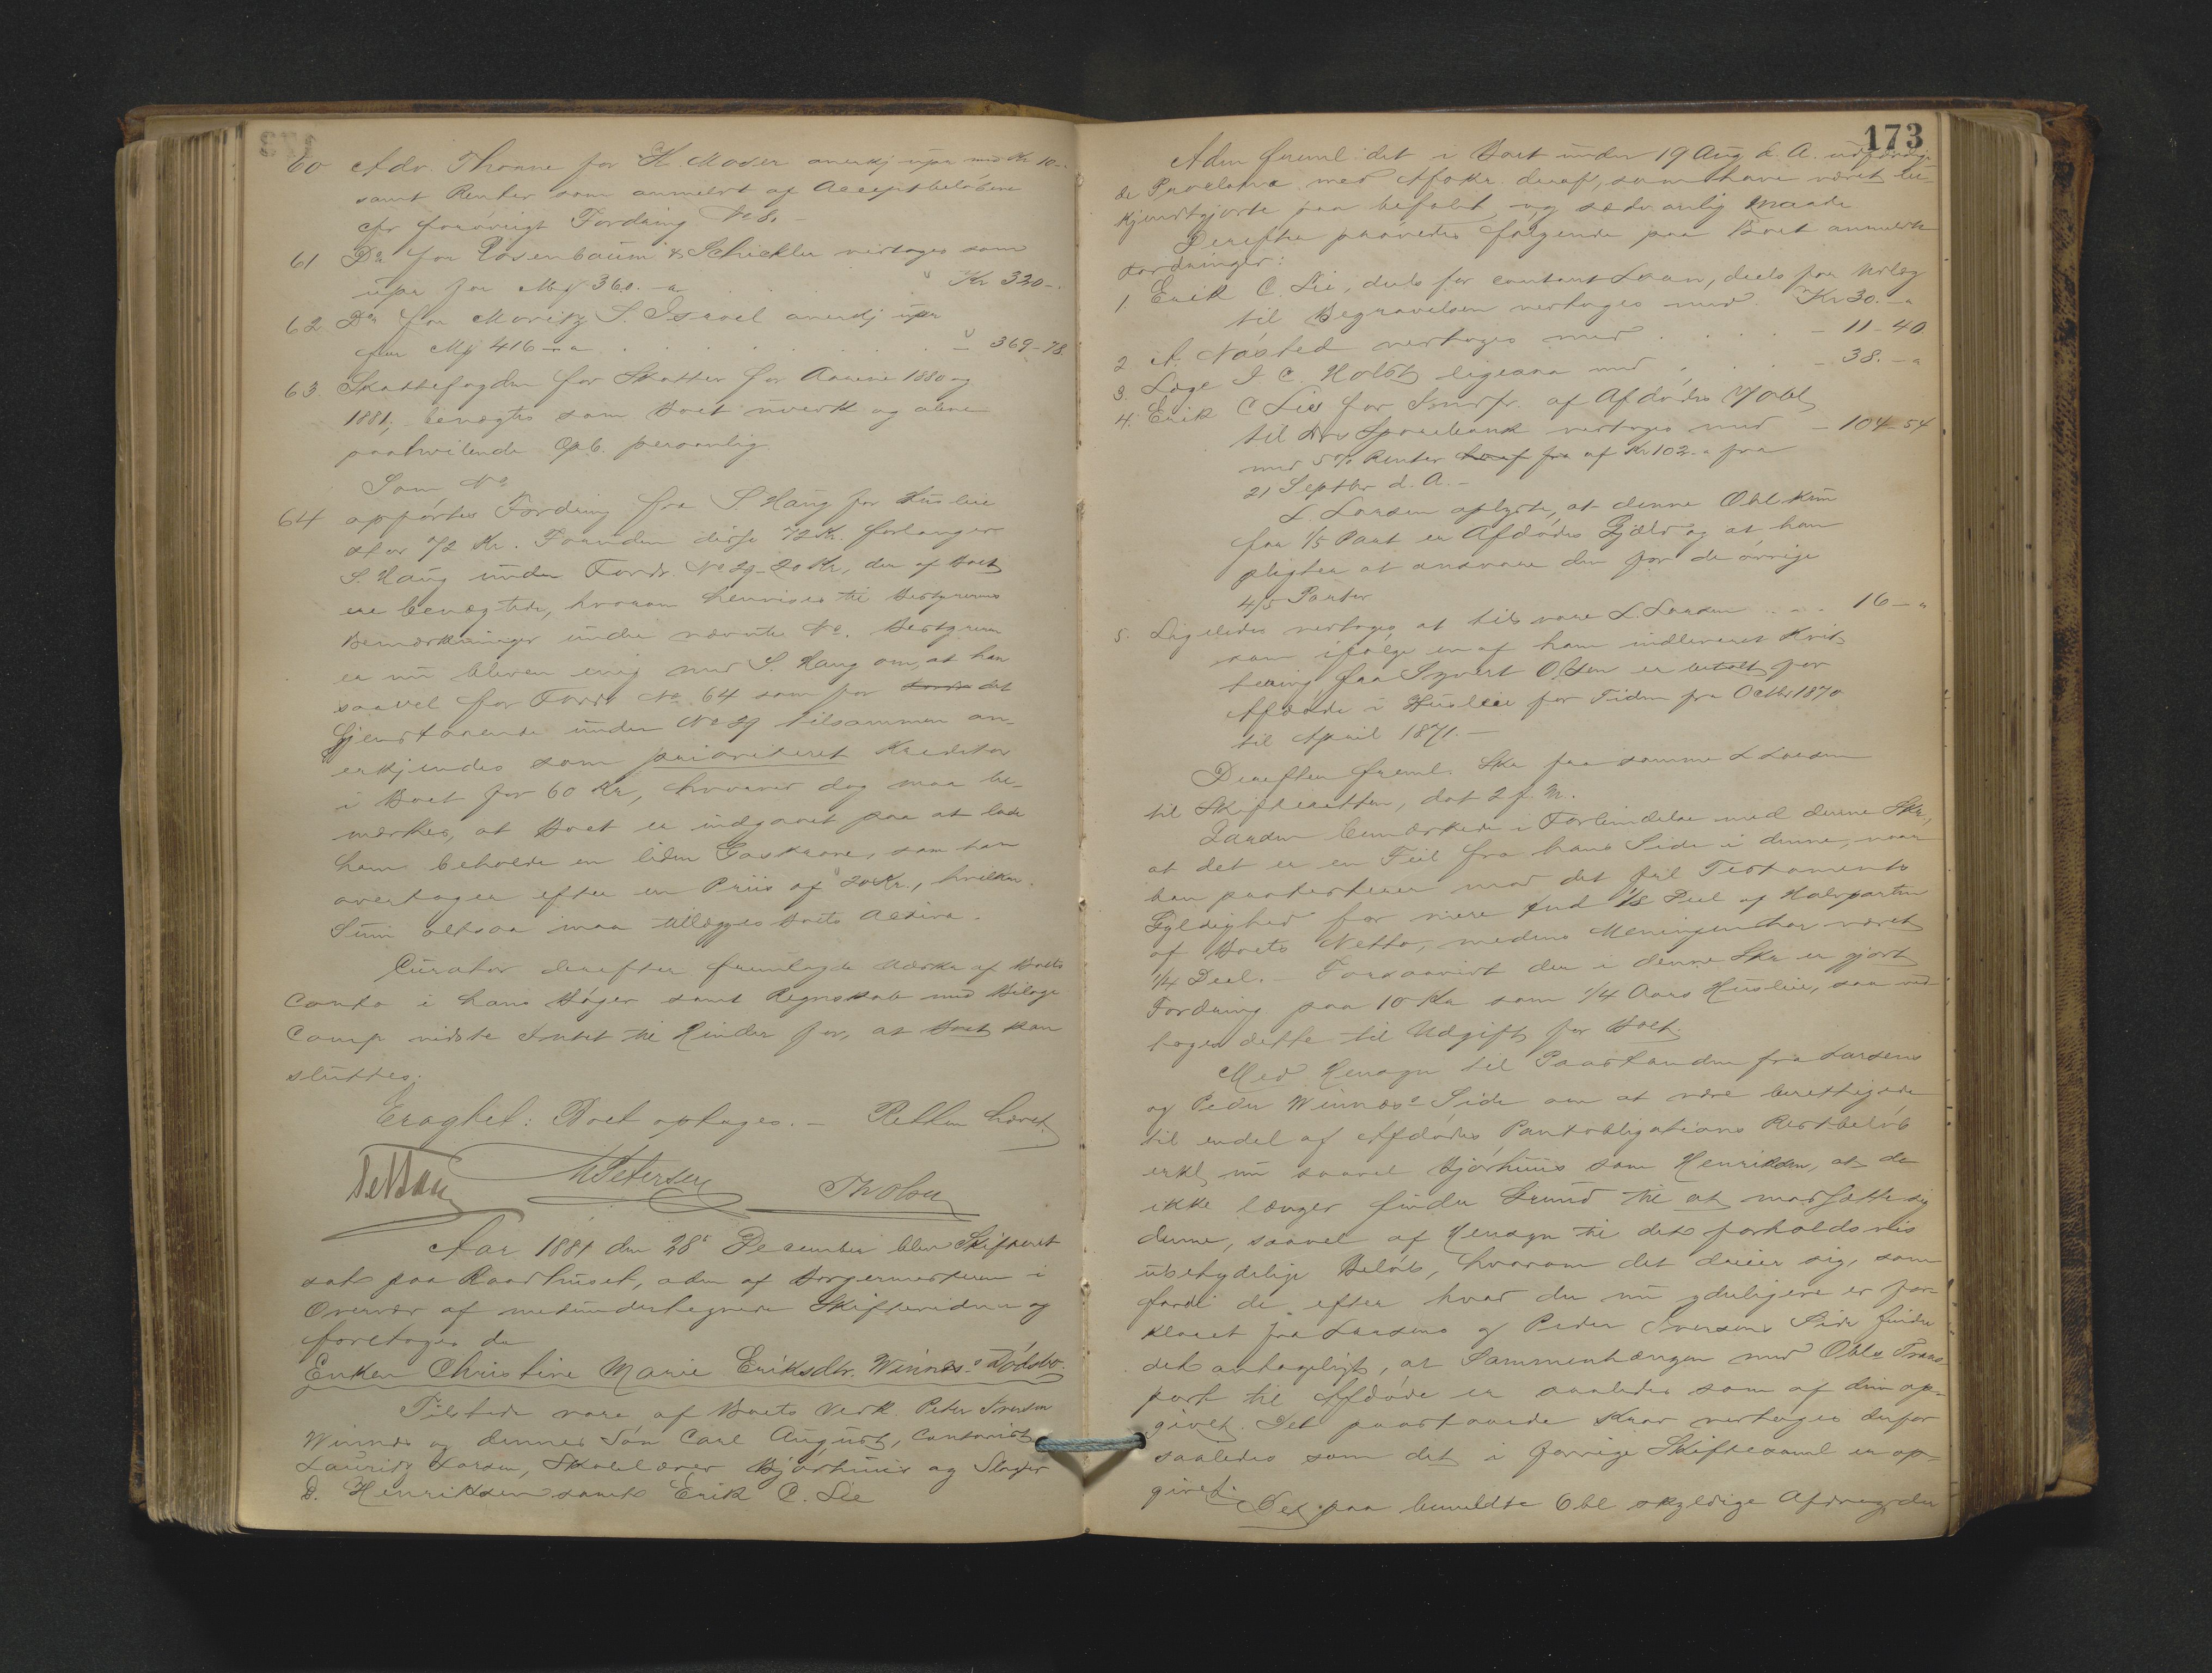 60 Adv. Thronne for H. Moser anerkj. upr med Kr 10-
samt Renter som anmeldt af Acceptbeløbene
cfr forøvrigt Fordring No 8.-
61 Do for Rosenbaum & Schickler vertoges som
upr for Mk 360.-" " Kr 320-.
62 Do for Moritz S. Israel anerkj upr
for Mk 416-" . . . . . . - 369-78.
63 Skattefogden for Skatter for Aarene 1880 og
1881, benægtes som Boet uvedk og alene
paahvilende Opb. personlig.
Som No
64 opførtes Fordring fra S. Haug for Husleie
stor 72 Kr. Foruden disse 72 Kr. forlanger
S. Haug under Fordr. No 29 - 20 Kr, der af Boet
ere benægtede, hvorom henvises til Bestyrerens
Bemærkninger under nævnte No. Bestyreren
er nu bleven enig med S. Haug om, at han
saavel for Fordr No 64 som for det
Gjenstaaende under No 29 tilsammen an-
erkjendes som prioriteret Kreditor
i Boet for 60 Kr, hvorved dog maa be-
mærkes, at Boet er indgaaet paa at lade
ham beholde en liden Gaskrone, som han
overtager efter en Priis af 20 Kr., hvilken
Sum altsaa maa tillægges Boets Activa.
Curator derefter fremlagde Udskr af Boets
Conto i hans Bøger samt Regnskab med Bilage
Comp vidste Intet til Hinder for, at Boet kan
sluttes.
Eragtet: Boet optages. - Retten hævet.
M Petersen Th Olsen
Aar 1881 den 28de December blev Skifteret
sat paa Raadhuset, adm af Borgermesteren i
Overvær af medunderskrevne Skiftevidner og
foretoges da
Enken Christine Marie Eriksdtr. Winnæs's Dødsbo.
Tilstede vare af Boets Vedk. Peder Iversen
Winnæs og dennes Søn Carl August, Contorist
Lauritz Larsen, Skolelærer Bjørhuus og Slagter
D. Henriksen samt Erik C. Lie
173
Adm freml. det i Boet under 19 Aug d. A. udfærdige-
de Proclama med Afskr. deraf, som have været be-
kjendtgjorte paa befalet og sædvanlig Maade
Derefter prøvedes følgende paa Boet anmeldte
Fordringer:
1. Erik C. Lie, dels for contant Laan, dels for Udlæg
til Begravelsen vertoges med. "Kr 30.-"
2 A. Nøsted vertoges med . . . - 11-40.
3. Læge I. C. Holst ligesaa med . . . - 38.-"
4. Erik C Lie for Indfr. af Afdødes Obl
til Sparebank vertoges med - 104-54
med 5% Renter af Kr 102-" fra
21 Septbr d. A.-
L. Larsen oplyste, at denne Obl kun
for 1/5 Part er Afdødes Gjæld og at han
pligter at ansvare den for de øvrige
4/5 Parter
5. Ligeledes vertoges at tilsvare L. Larsen . . . 16-"
som ifølge en af ham indleveret Kvit-
tering fra Syvert Olsen er betalt for
Afdøde i Husleie for Tiden fra Octbr 1870
til April 1871.-
Derefter freml. Skr fra samme L Larsen
til Skifteretten, dat 2 f. M.
Larsen bemærkede i Forbindelse med denne Skr,
at det er en Feil fra hans Side i denne, naar
han protesterer mod det Testaments
Gyldighed for mere end 1/8 Deel af Halvparten
af Boets Netto, medens Meningen har været
1/4 Deel.- Forsaavidt der i denne Skr er gjort
Fordring paa 10 Kr som 1/4 Aars Husleie, saa ved-
toges dette til Udgift for Boet.
Med Hensyn til Paastanden fra Larsens
og Peder Winnæs's Side om at være berettigede
til endel af Afdødes Pantobligations Restbeløb
erkl nu saavel Bjørhuus som Henriksen, at de
ikke længer finder Grund til at modsætte sig
denne, saavel af Hensyn til det forholdsvis
ubetydelige Beløb, hvorom det dreier sig, som
fordi de efter hvad der nu yderligere er for-
klaret fra Larsens og Peder Iversens Side finder
det antageligt, at Sammenhængen med Obls Trans-
port til Afdøde er saaledes som af dem op-
givet. Det paastaaede Krav vertoges derfor
saaledes som det i forrige Skiftesaml er op-
givet.
Det paa bemeldte Obl skyldige Afdrag, der